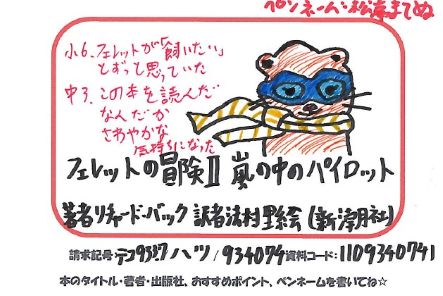 ペンネーム・松浦まてぬ
小6.フェレットが「飼いたい」
とずっと思っていた
中3.この本を読んだ
なんだか
さわやかな
気持ちになった
フェレットの冒険Ⅱ 嵐の中のパイロット
著者リチャード・バック 訳者法村里絵(新潮社)
請求記号 テコ9327ハツ/934074 資料コード:1109340741
本のタイトル・著者・出版社、おすすめポイント、ペンネームを書いてね☆